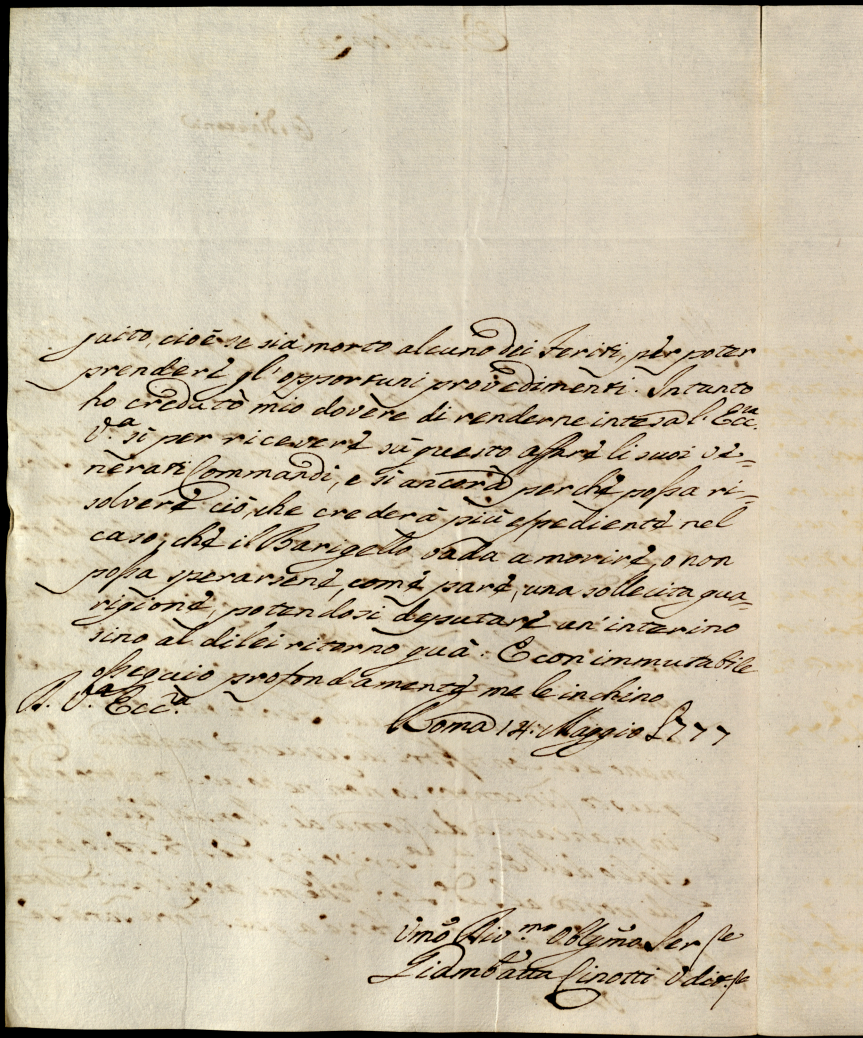 guito, cioè se sia morto alcuno dei feriti, per poter
prendere gl'opportuni provedimenti. Intanto
ho creduto mio dovere di renderne intesa l'Ecc.za
V.a sì per ricevere sù questo affare li suoi ve-
nerati Commandi, e sì ancora perchè possa ri-
solvere ciò, che crederà più espediente nel
caso, che il Barigello vada a morire, o non
possa sperarsene, come pare, una sollecita gua-
rigione, potendosi deputare un'interino
sino al di lei ritorno quà. E con immutabile
ossequio profondamente me le inchino
D. V.a Ecc.a
Roma 14 Maggio 1777
Umo Divmo Obbgmo Ser.re
Giambatta Cinotti Udit.re